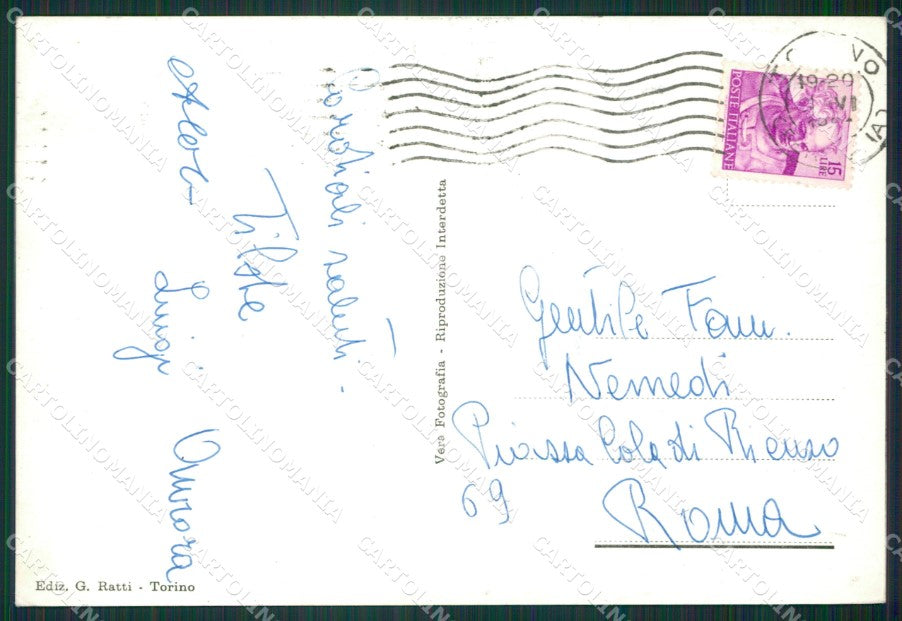 Cordiali saluti.
Tilde
Luigi Aurora
Vera Fotografia - Riproduzione Interdetta
Ediz. G. Ratti - Torino
POSTE ITALIANE
15
LIRE
19-20
VI
Gentile Fam.
Nemedi
Piazza Cola di Rienzo
69
Roma
CARTOLINOMANIA